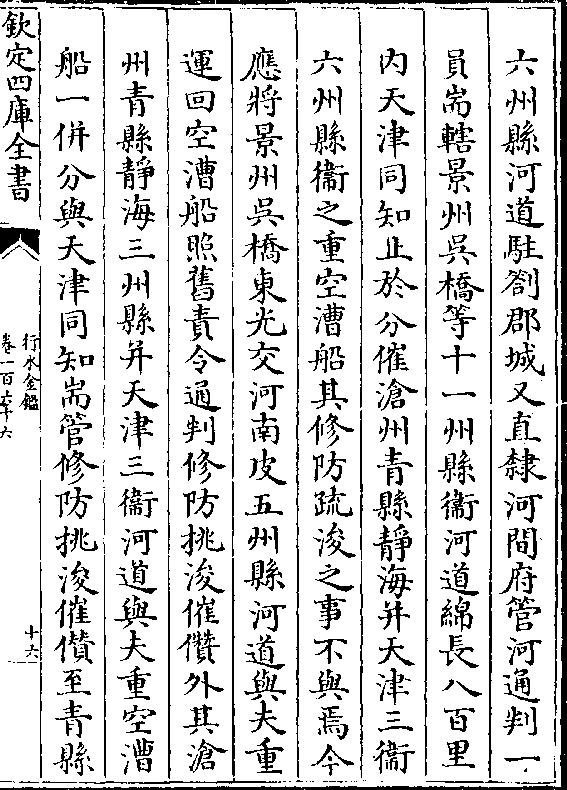 六州縣河道駐劄郡城又直隸河間府管河通判一
員耑轄景州吳橋等十一州縣衞河道綿長八百里
内天津同知止於分催滄州青縣靜海并天津三衞
六州縣衞之重空漕船其修防疏浚之事不與焉今
應將景州吳橋東光交河南皮五州縣河道與夫重
運回空漕船照舊責令通判修防挑浚催儹外其滄
州青縣靜海三州縣并天津三衞河道與夫重空漕
船一併分與天津同知耑管修防挑浚催儹至青縣
欽定四庫全書
行水金鑑
卷一百六十六
十六